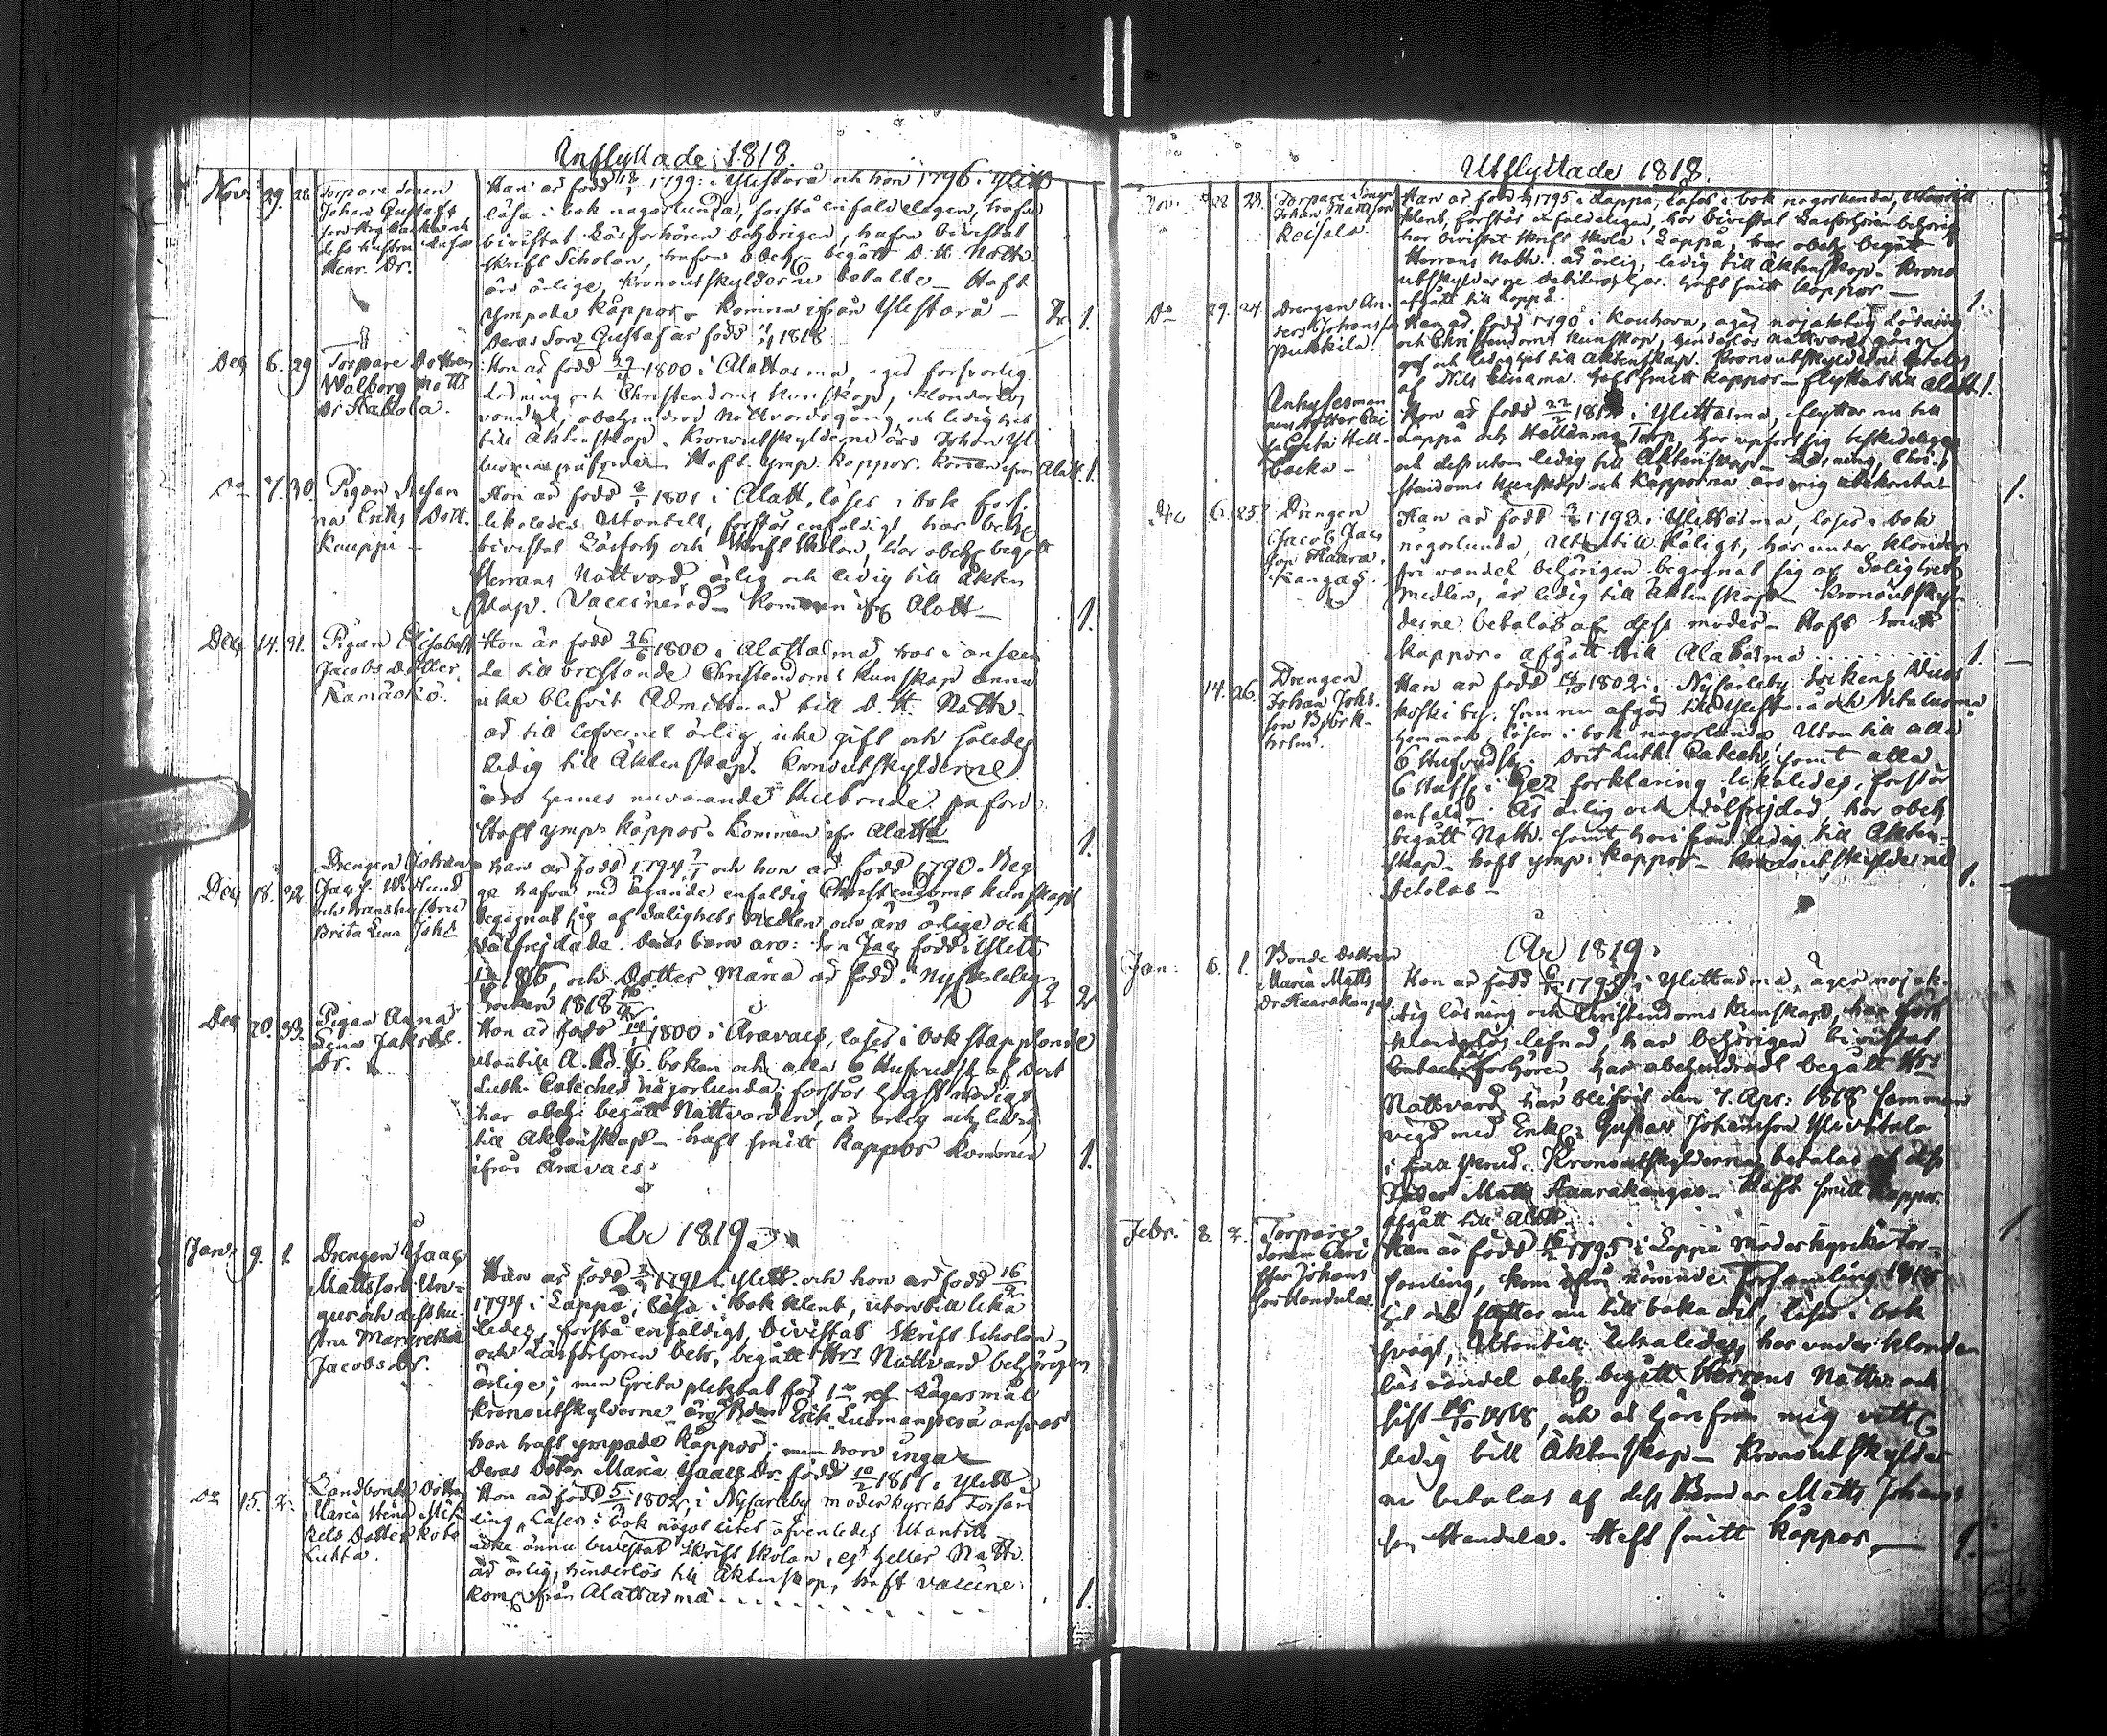 Inflyttade 1818.
Nov. 29. 28. Torpare sonen
Johan Gustafs
son
dess hustru
Henr. Dr.
Han är född 18/1 1799 i Ylistarå och hon 1796 i
läsa i bok någorlunda, förstå enfaldeligen, hafva
bivistat Läsförhören behörigen, hafva bivistat
skrift Scholan, hafva obeh. begått D. H. Nattv.
äro ärlige, Kronoutskylderne betalte _ Haft
ympade Kåppor. Komna ifrån Ylistarå _ 2. 1.
Deras Son Gustaf är född 1818
Dec 6. 29 Torpare Dottren
Walborg Matts
Dr
Hon är född 1800 i Alattarma, eger försvarlig
Läsning och Christendoms Kunskap, klanderlös
vandel, obehindrad Nattvardsgång och ledighet
till Äktenskap. Kronoutskylderne äro Johan Yl
Haft ymp. Kåppor. Kommen ifrån Alatt. 1.
Do 7. 30. Pigan Susan
na Eriks Dott.
Kauppi _
Hon är född 1801 i Alatt. läser i bok för
likaledes Utantill, förstår enfaldigt, har beh.
bivistat Läsförh och Skrift Skolan, har obeh. begått
Herrans Nattvard, ärlig och ledig till Äkten
skap. Vaccinerad _ Kommen ifr. Alatt _ 1.
Dec 14. 31. Pigan Elisabeth
Jacobs Dotter
Hon är född 26/6 1800 i Alattarma, har i anseen
de till bristande Christendoms Kunskap ännu
icke blifvit Admitterad till D. H. Nattv.
är till lefvernet ärlig, icke gift och således
ledig till Äktenskap. Kronoutskylderne
äro hennes nuvarande Husbonde påförd.
Haft ymp. Kåppor. Kommen ifr. Alatt. 1.
Dec 18. 32. Drengen Johan
Jac.s. Widlund
och hans hustru
Brita Lena Joh.
Han är född 1794 och hon är född 1790. Beg
ge hafva med ägande enfaldig Christendoms Kunskap
begagnat sig af Salighets Medlen och äro ärlige och
välfrejdade. Deras barn äro: Son Jac. född i Ylitt
och Dotter Maria är född i Nykarleby
Socken 1818 2 2
Dec 20. 33. Pigan Anna
Lena Jakobs
Dr.
Hon är född 1800 i Oravais, läser i bok stapplande
utantill A. B. C. boken och alla 6 Hufvudst. af Doct
Luth. Cateches någorlunda, förstår högst nödigt
har obeh. begått Nattvarden, är ärlig och ledig
till Äktenskap _ haft smitt Kåppor Kommen 1.
ifrån Oravais.
År 1819.
Jan. 9. 1. Drengen Isaac
Mattsson Un-
gus och dess hu-
stru Margretha
Jacobs Dr.
Han är född 1791 i Ylitt. och hon är född 16
1794 i Lappo, läsa i bok klent, utantill lika
ledes, förstå enfaldigt, bivistat Skrift Scholan,
och Läsförhören beh., begått Hrs Nattvard behörigen
ärlige; men Greta pliktat för 1sta resa Lägersmål
Kronoutskylderne Erik
han haft ympade Kåppor, men hon inga
Deras Doter Maria Isaacs Dr. född 10/2 1817 i Ylitt
Do 15. 2. Landbonde Dottren
Maria Stina Mic
kels Dotter
Luhta.
Hon är född 5 1802 i Nykarleby moderkyrko Försam
ling, Läser i bok något litet äfvenledes Utantill
icke ännu bivistat skrift skolan, ej heller Nattv.
är ärlig, hinderlös till Äktenskap, haft vaccine
kom. ifrån Alattarma. 1.
Utflyttade 1818.
Nov. 28 23. Torpare Sonen
Johan Mattsson
Reisala
Han är född 1795 i Lappo, Läser i bok någorlunda, Utantill
klent, förstår enfaldeligen, har bivistat Läsförhören behörig
har bivistat skrift skola i Lappo, har obeh. begått
Herrans Nattv. är ärlig, ledig till Äktenskap. Krono
utskylderne debiteras här. Haft smitt Kåppor _
afgått till Lappo. 1.
Do 29. 24. Drengen An-
ders Johansson
Pukkila.
Han är född 1790 i Kauhava, äger nöjaktig Läsning
och Christendoms kunskap, hinderlös nattvards gång
och ledighet till Äktenskap. Kronoutskylderne betalas
af Nils haft smitt Kåppor _ flyttat till Alatt. 1.
Inhyses man
nens dotter Cai
sa Greta Hell-
backa _
Hon är född 22/2 i Ylittarma, flyttar nu till
Lappo och Hellanmaa Torp, har upfört sig beskedeligen
och dess utom ledig till Äktenskap _ Läsning, Chri
stendoms Kunskap och Kåpporna äro mig obekanta 1.
Dec 6. 25. Drengen
Jacob Jacs
son Haara-
kangas.
Han är född 1798 i Ylittarma, läser i bok
någorlunda, utantill dåligt, har under klander
fri vandel behörigen begagnat sig af Salighets
medlen, är ledig till Äktenskap _ Kronoutskyl-
derne betalas af dess moder _ Haft Smitt
Kåppor. afgått till Alattarma 1.
14. 26. Drengen
Johan Johs.
son Björk-
holm.
Han är född 1802 i Nykarleby Sockens
by, som nu afgår till Ylistaro och
hemman, läser i bok någorlunda, Utantill alla
6 Hufvudst. Doct Luth. Catech., samt alla
förklaring likaledes, förstår
enfald. Är ärlig och välfrejdad, har obeh.
begått Nattv. samt härifrån ledig till Äkten-
skap. haft ymp. Kåppor _ Kronoutskylderne
betalas _ 1.
År 1819.
Jan. 6. 1. Bonde dottren
Maria Matts
Dr Haarakangas
Hon är född 1795 i Ylittarma, äger nöjak-
tig läsning och Christendoms kunskap, har fört
klanderlös lefnad, har behörigen bivistat
Läs förhören, har obehindradt begått Hrs
Nattvard, har blifvit den 7. Apr: 1818 Samman
vigd med Enkl. Gustaf Johansson Ylivitala
i full skrud. Kronoutskylderna betalas af dess
Fader Matts Haarakangas _ Haft smitt Kåppor.
afgått till Alatt. 1.
Febr. 8. 2. Torpare
sonen Chri
ster Johans
son Handula.
Han är född 1795 i Lappo Moderkyrko För-
samling, kom ifrån nämnde Församling 1818
hit och flyttar nu till baka dit, läser i bok
svagt, Utantill likaledes, har under klander
lös vandel obeh. begått Herrans Nattv. och
sist 1818, och är härifrån mig vett.
ledig till Äktenskap _ Kronoutskylder
ne betalas af dess Broder Matts Johans
son Handula. Haft smitt Kåppor _ 1.